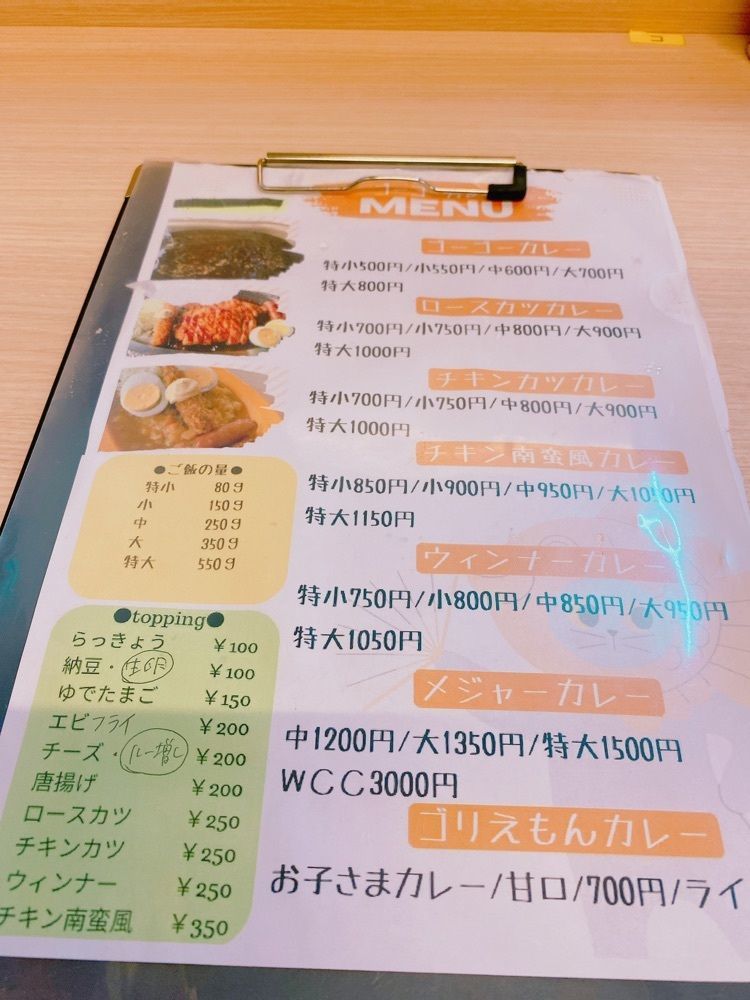 MENU
ゴーゴーカレー
特小500円/小550円/中600円/大700円
特大800円
ロースカツカレー
特小700円/小750円/中800円/大900円
特大1000円
チキンカツカレー
特小700円/小750円/中800円/大900円
特大1000円
チキン南蛮風カレー
特小850円/小900円/中950円/大1050円
特大1150円
ウィンナーカレー
特小750円/小800円/中850円/大950円
特大1050円
メジャーカレー
中1200円/大1350円/特大1500円
WCC3000円
ゴリえもんカレー
お子さまカレー/甘口/700円/ライ
●ご飯の量●
特小 80g
小 150g
中 250g
大 350g
特大 550g
●topping●
らっきょう ¥100
納豆・生卵 ¥100
ゆでたまご ¥150
エビフライ ¥200
チーズ・ルー増し ¥200
唐揚げ ¥200
ロースカツ ¥250
チキンカツ ¥250
ウィンナー ¥250
チキン南蛮風 ¥350